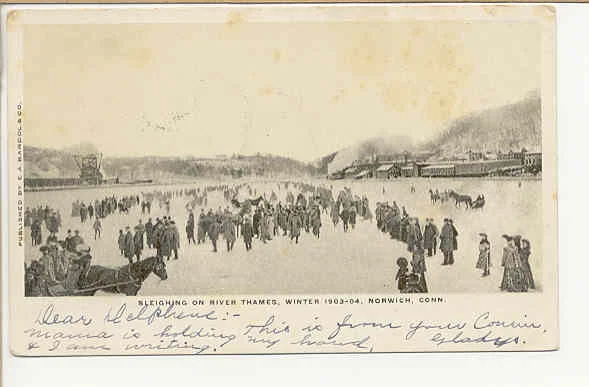 SLEIGHING ON RIVER THAMES, WINTER 1903-04, NORWICH, CONN.
Dear Delphene:- This is from your Cousin,
Mama is holding my hand, Gladys.
& I am writing.